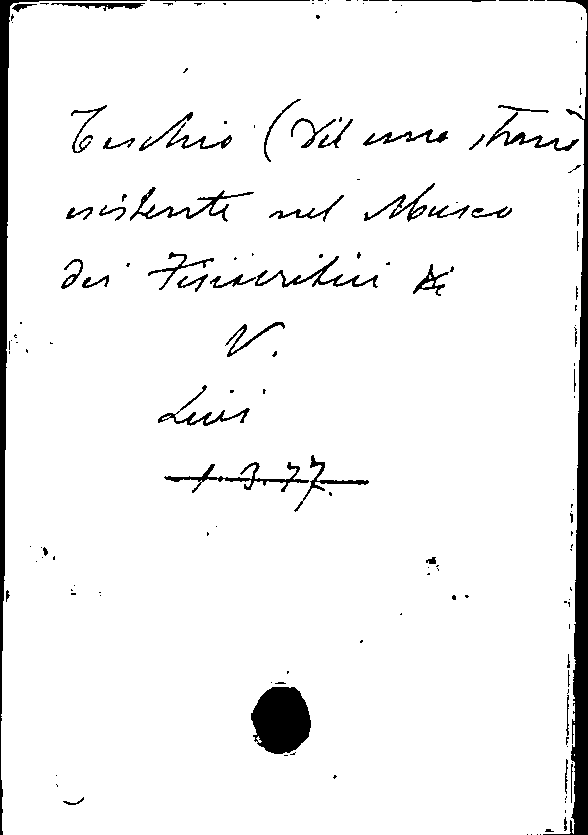 Teschio (Di una strano
esistente nel Museo
dei Fisiocritici di
V.
Livi
1.3.77.